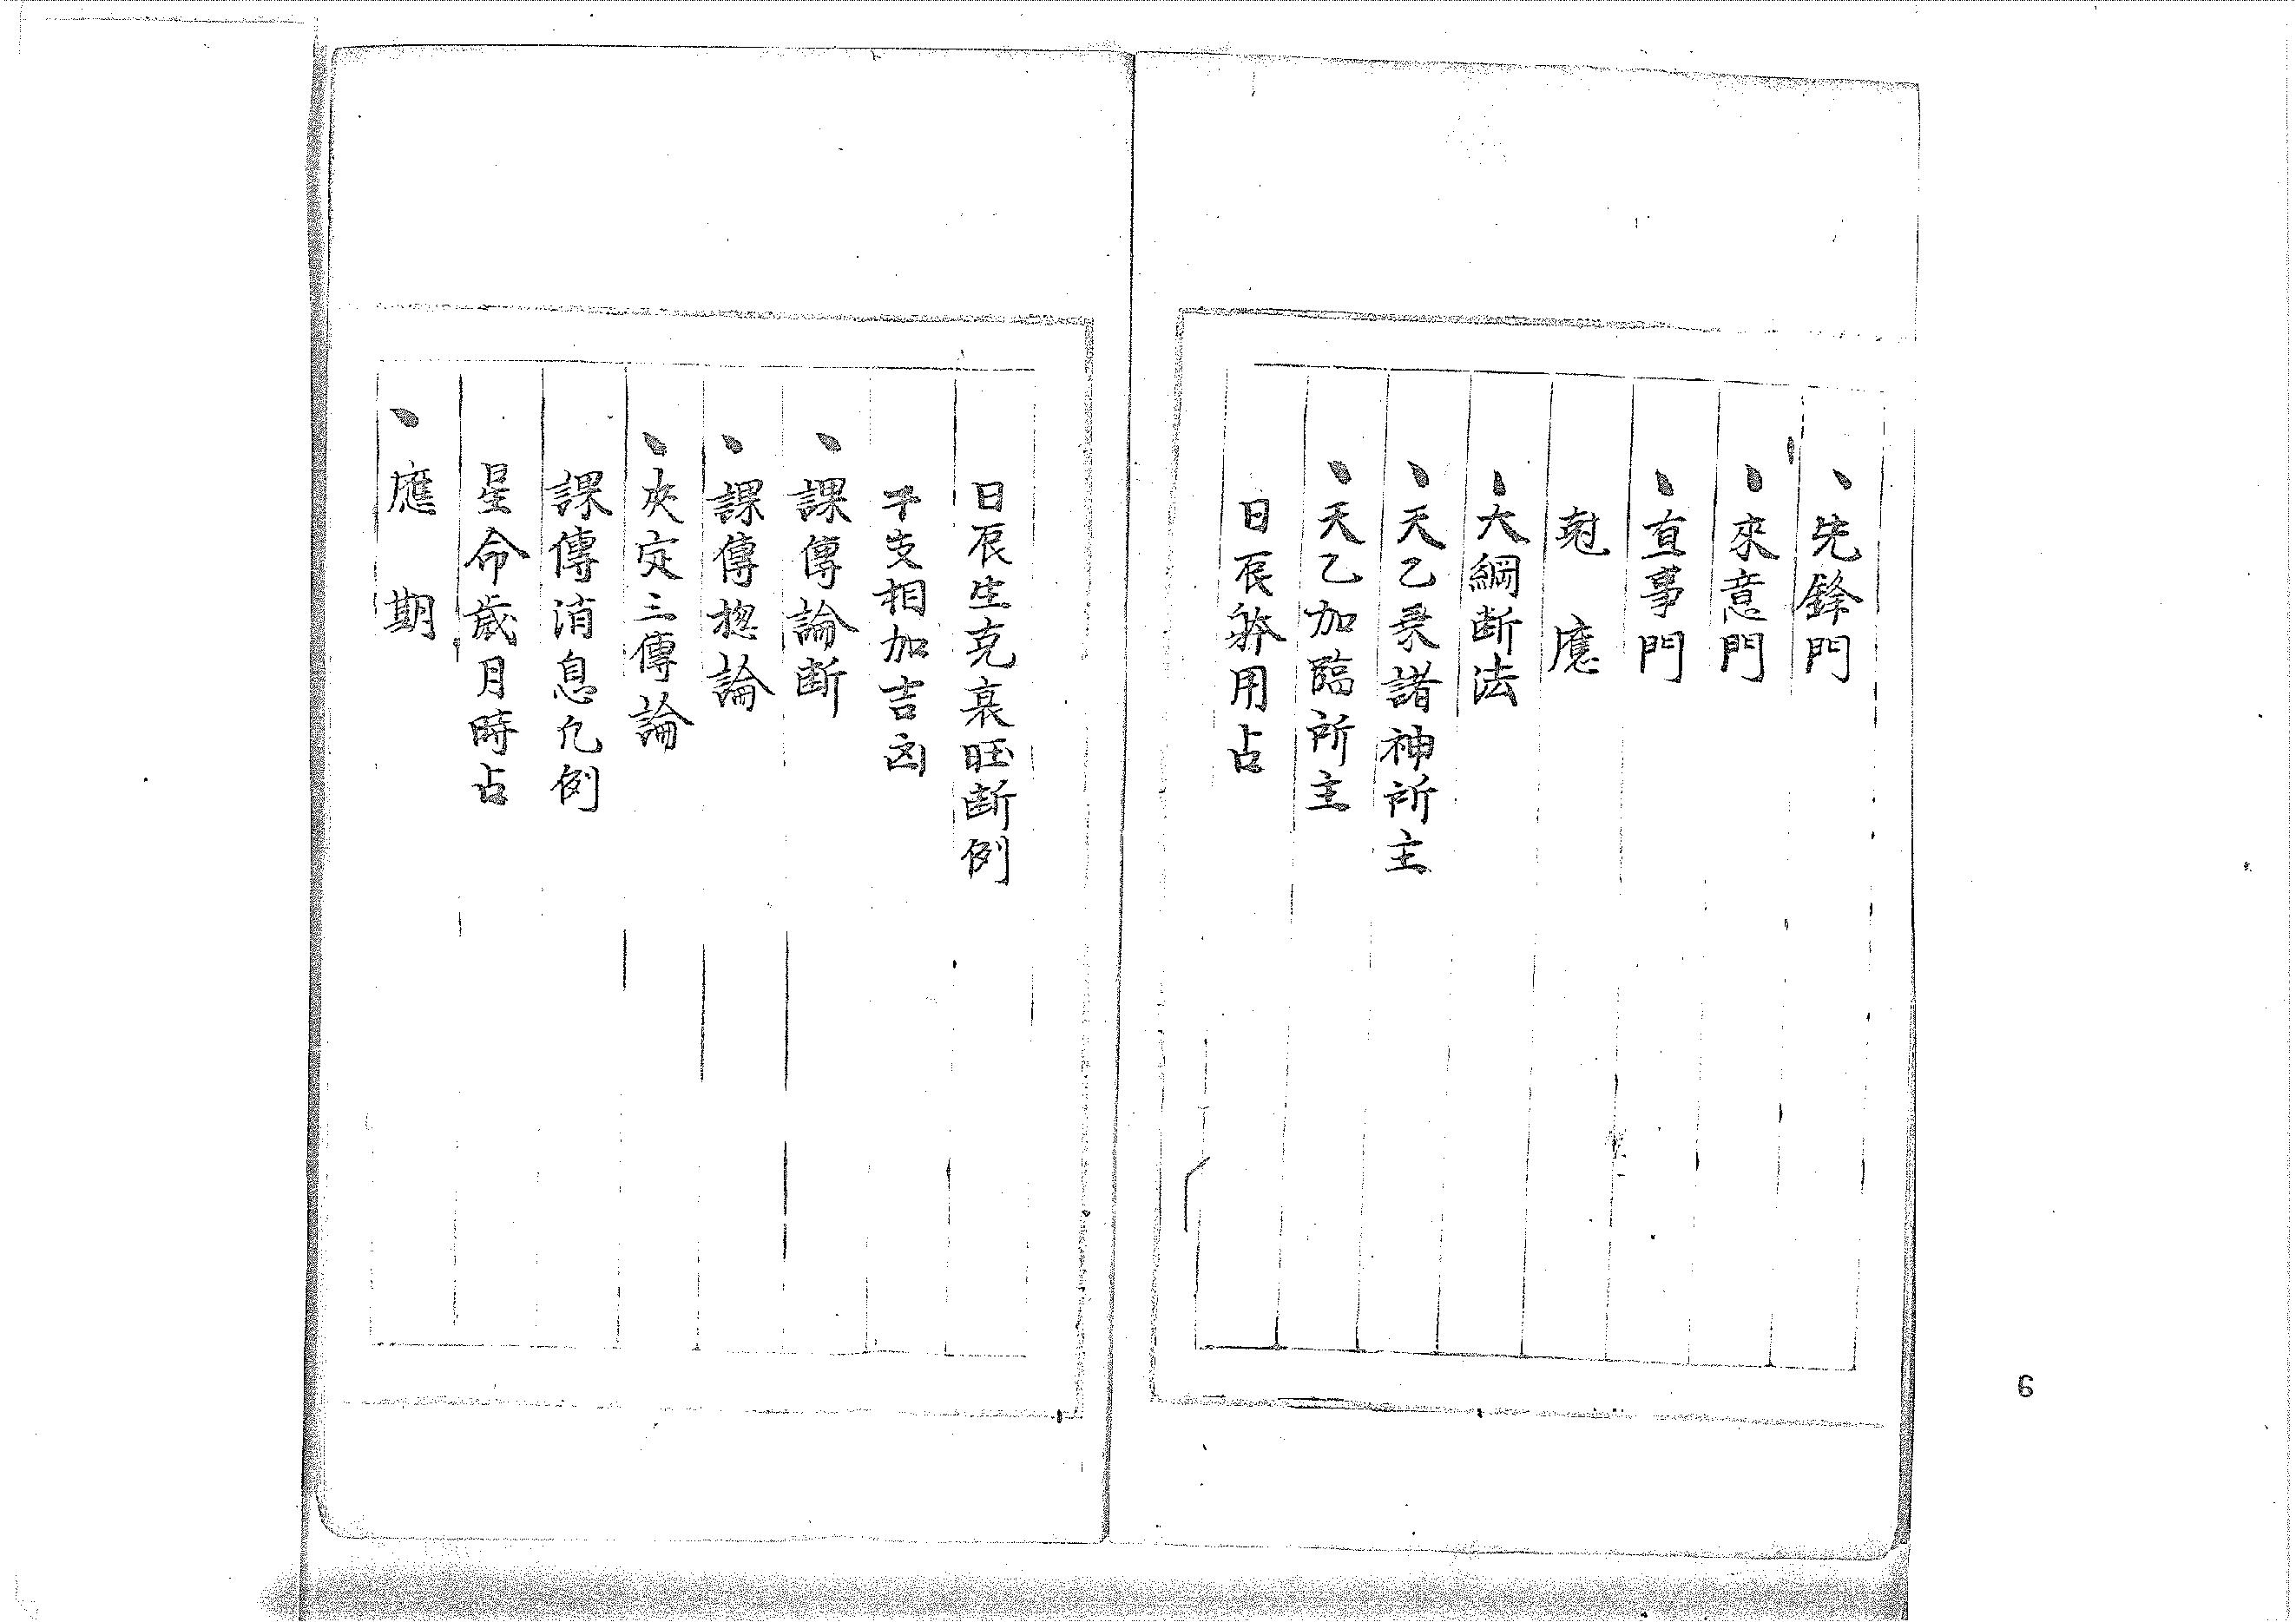 、先鋒門
、來意門
、直事門
尅應
、大綱断法
、天乙彔諸神所主
、天乙加臨所主
日辰發用占
日辰生克衰旺断例
干支相加吉凶
、課傳論断
、課傳揔論
、灾定三傳論
課傳消息凡例
星命歲月時占
、應期
6